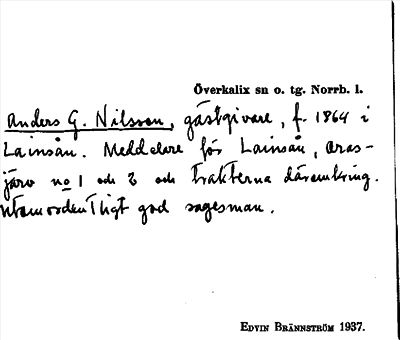 Överkalix sn o. tg. Norrb. l.
Anders G. Nilsson, gästgivare, f. 1864 i
Lainsån. Meddelare för Lainsån, Oras-
järv no 1 och 2 och trakterna däromkring.
Utomordentligt god sagesman.
EDVIN BRÄNNSTRÖM 1937.